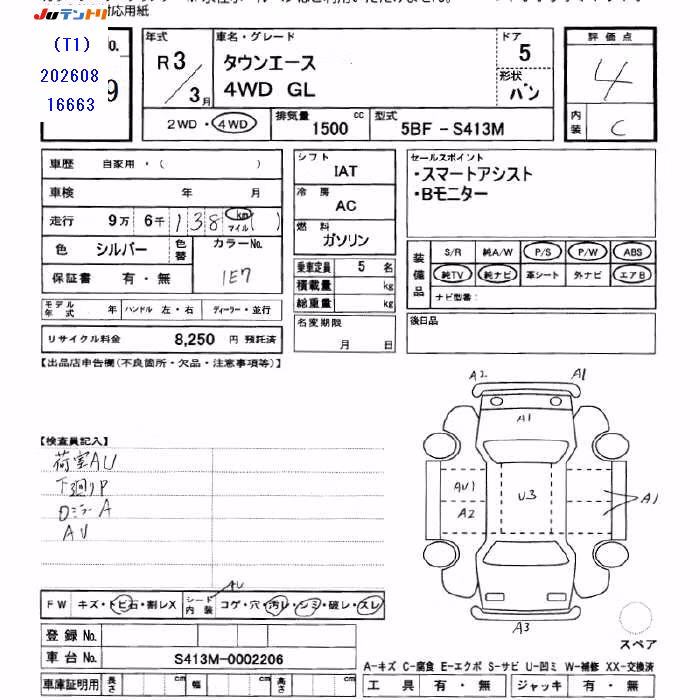 対応用紙
Juテントリ
(T1)
No.
202608
16663
9
年式
R 3/3月
車名・グレード
タウンエース
4WD GL
ドア
5
形状
バン
評価点
4
内装
C
2WD・4WD
排気量
1500 cc
型式
5BF - S413M
車歴 自家用・( )
車検 年 月
走行 9万 6千 138 km マイル ( )
色 シルバー 色替
カラーNo.
1E7
保証書 有・無
モデル年式 年 ハンドル 左・右 ディーラー・並行
リサイクル料金 8,250 円 預託済
シフト
IAT
冷房
AC
燃料
ガソリン
乗車定員 5 名
積載量 kg
総重量 kg
名変期限
月 日
セールスポイント
・スマートアシスト
・Bモニター
装備品
S/R 純A/W P/S P/W ABS
純TV 純ナビ 革シート 外ナビ エアB
ナビ型番:
後日品
【出品店申告欄(不良箇所・欠品・注意事項等)】
【検査員記入】
荷室AU
下廻りP
ロミラーA
AU
A2
A1
A1
AU1
A2
U3
A1
A3
スペア
FW キズ・トビ石・割レX
シート内装 コゲ・穴・汚レ・シミ・破レ・スレ
AU
登録 No.
車台 No. S413M-0002206
車庫証明用 長さ cm 幅 cm 高さ cm
A-キズ C-腐食 E-エクボ S-サビ U-凹ミ W-補修 XX-交換済
工具 有・無 ジャッキ 有・無